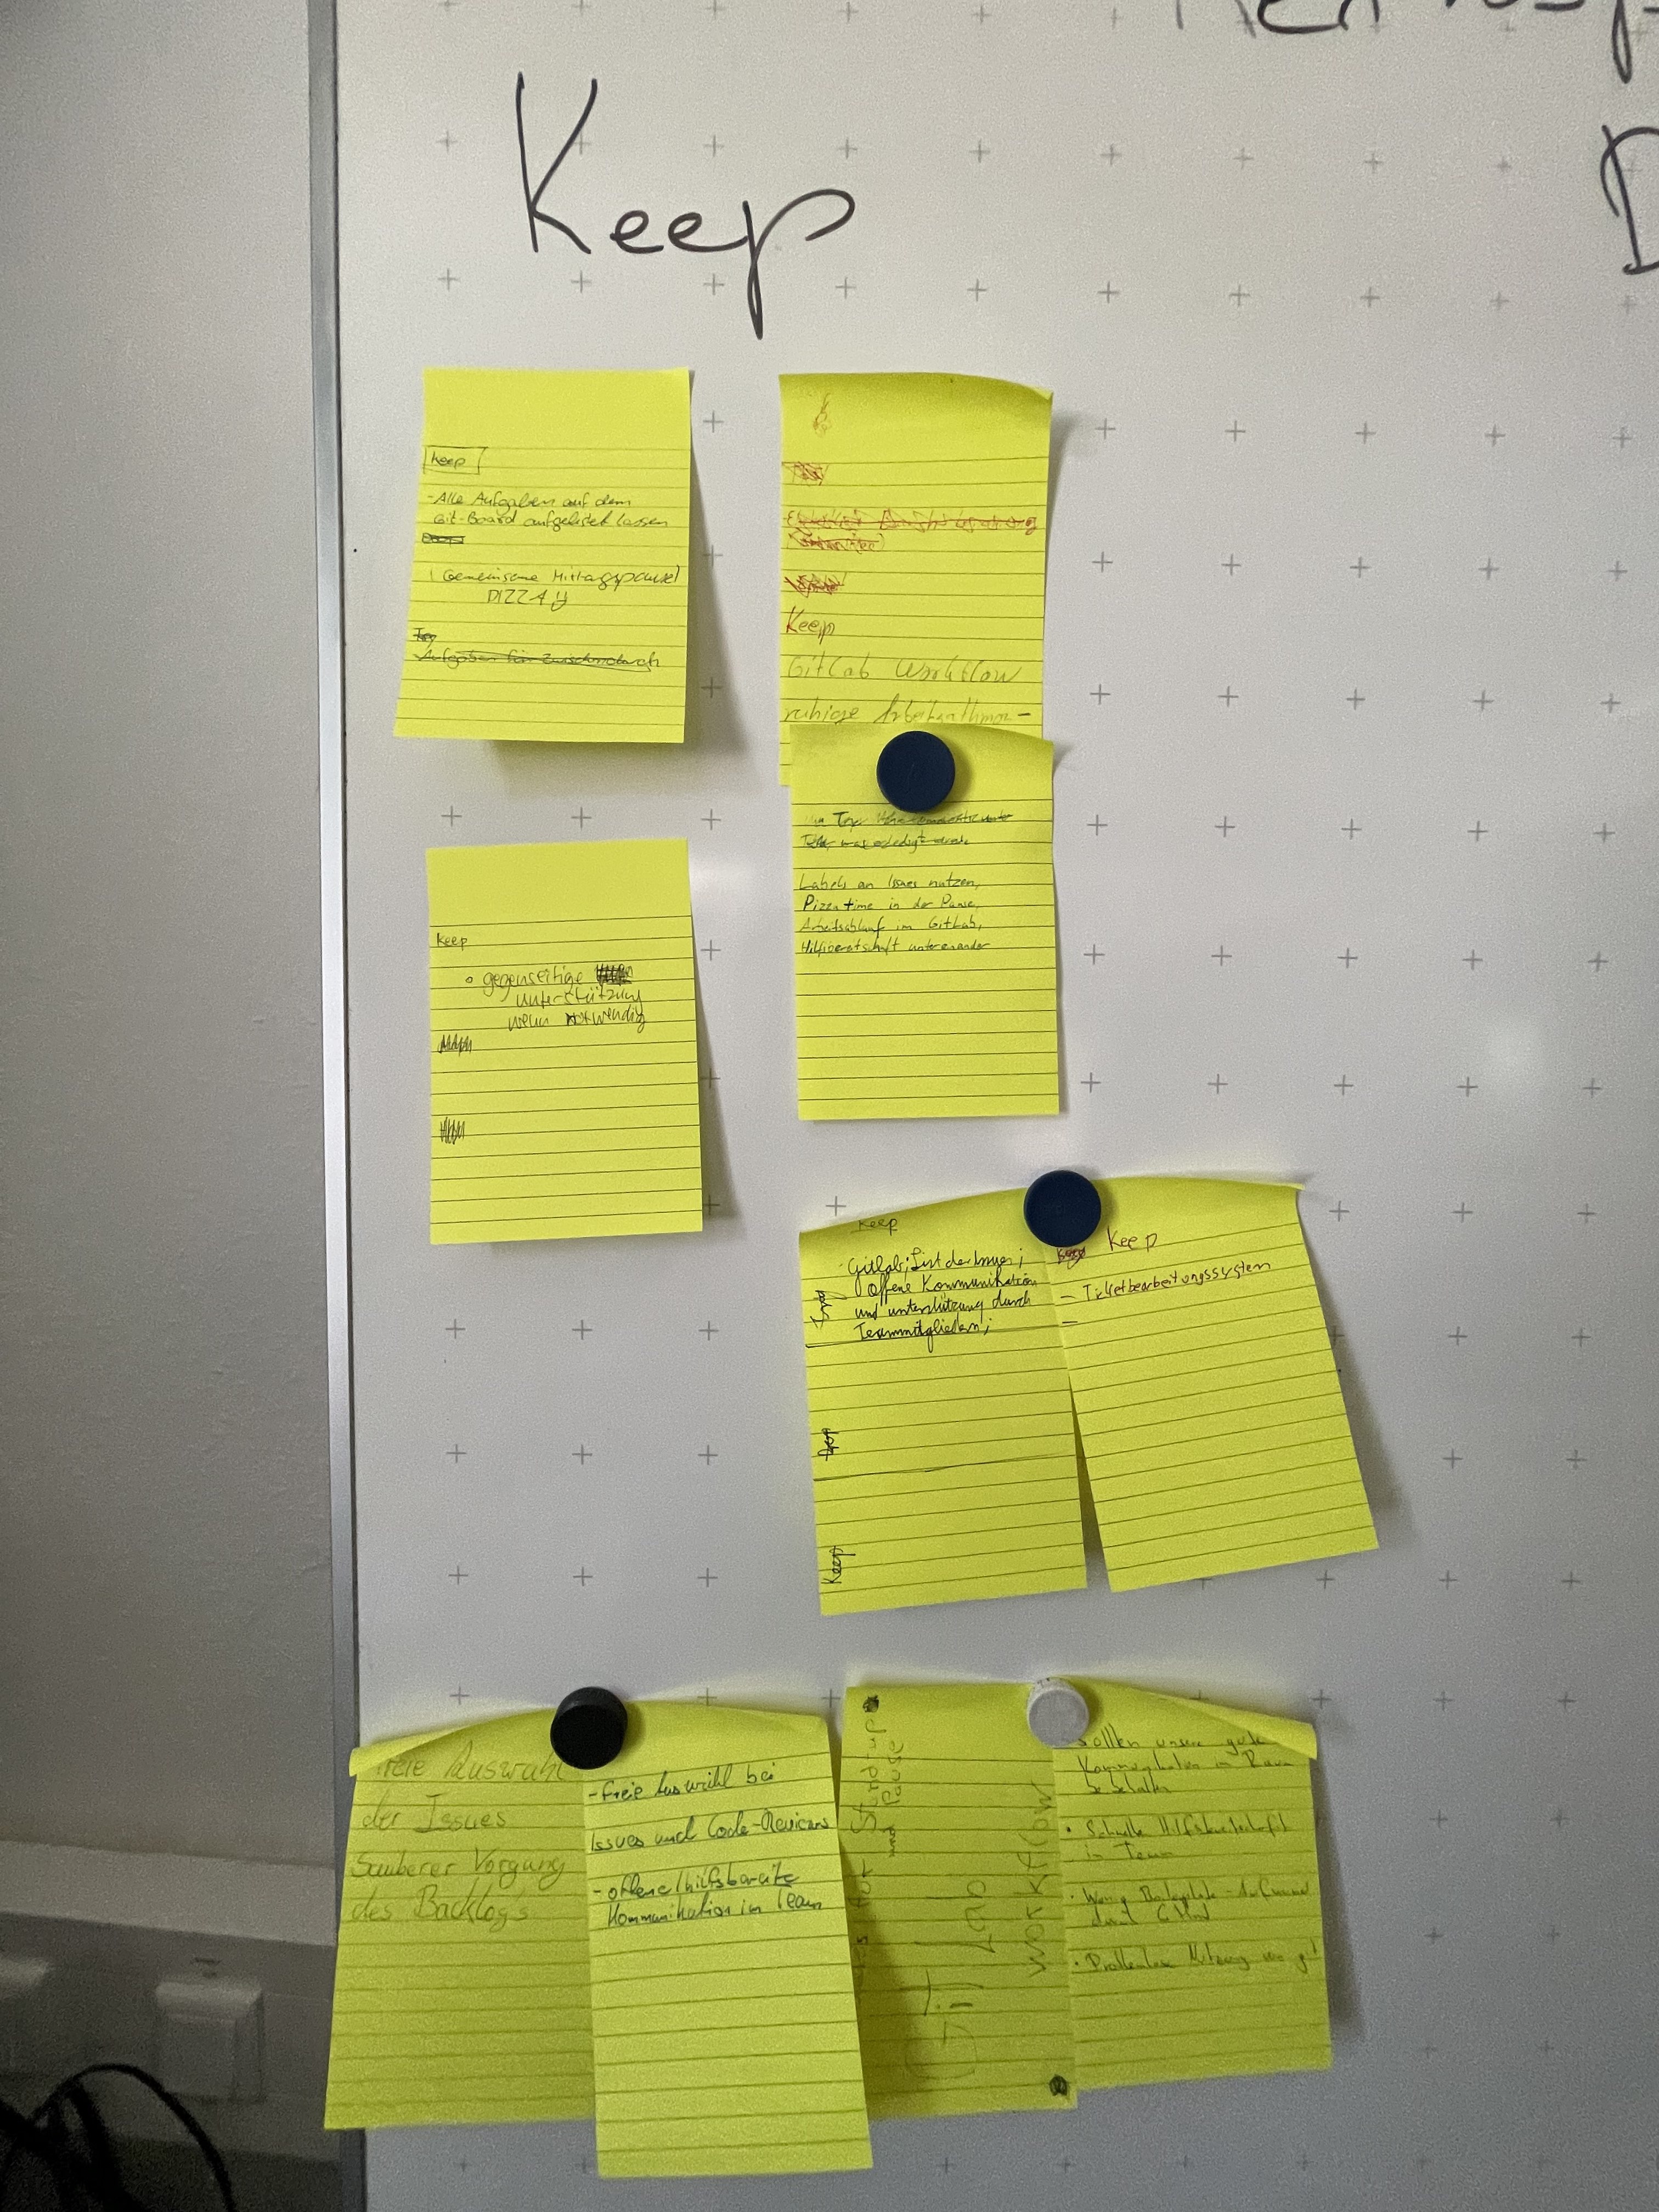 Keep
Keep
-Alle Aufgaben auf dem
Git-Board aufgelistet lassen
(Gemeinsame Mittagspause)
PIZZA
Aufgaben für Zwischendurch
Keep
GitLab Workflow
ruhige Arbeitsathmos-
Try
was erledigt wurde
Labels an Issues nutzen,
Pizza time in der Pause,
Arbeitsablauf im GitLab,
Hilfsbereitschaft untereinander
keep
gegenseitige
unterstützung
wenn notwendig
Keep
Gitlab; List der Issues;
offene Kommunikation
und unterstützung durch
Teammitgliedern;
Drop
Keep
Keep
- Ticketbearbeitungssystem
-
freie Auswahl
der Issues
Sauberer Vorgang
des Backlogs
- freie Auswahl bei
Issues und Code-Reviews
- offene/hilfsbereite
Kommunikation im Team
Stand-up
und Pause
Git Lab
workflow
sollten unsere gute
Kommunikation im Raum
behalten
• Schnelle Hilfsbereitschaft
im Team
durch Gitlab
• Problemlose Nutzung von git